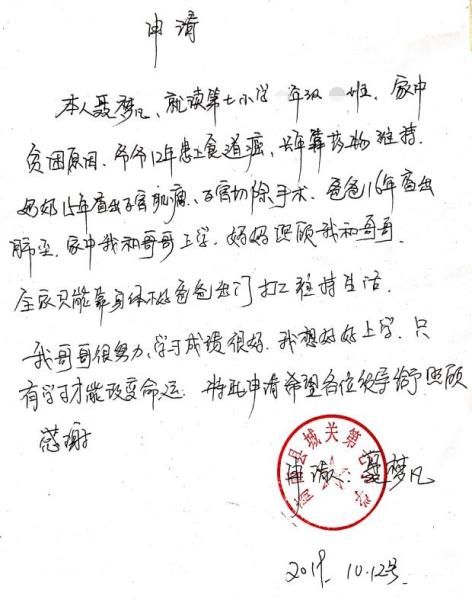 申请
本人聂梦凡、就读第七小学 年级 班、家中
贫困原因、爷爷12年患上食道癌、长年靠药物维持.
奶奶15年查出子宫肌瘤、子宫切除手术、爸爸16年查出
肺 、家中我和哥哥上学、妈妈照顾我和哥哥.
全家只能靠身体不好爸爸出门打工维持生活.
我哥哥很努力、学习成绩很好. 我想好好上学、只
有学习才能改变命运. 特此申请希望各位领导给予照顾
感谢
县城关第七小
申请人: 聂梦凡
2019. 10.12号